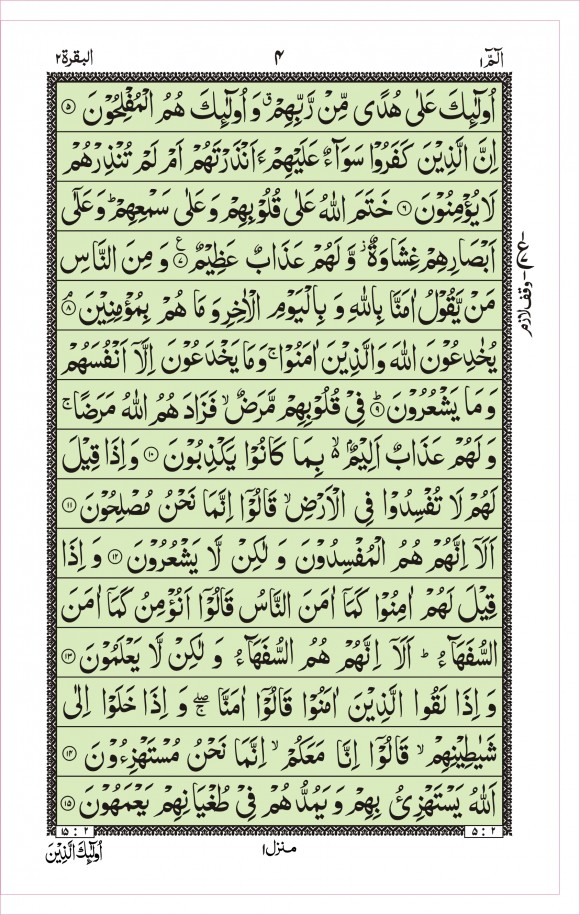 الٓمّٓ ۱ ۴ البقرة ۲
اُولٰٓئِكَ عَلٰى هُدًى مِّنْ رَّبِّهِمْ ۗ وَ اُولٰٓئِكَ هُمُ الْمُفْلِحُوْنَ ۵
اِنَّ الَّذِيْنَ كَفَرُوْا سَوَآءٌ عَلَيْهِمْ ءَاَنْذَرْتَهُمْ اَمْ لَمْ تُنْذِرْهُمْ
لَا يُؤْمِنُوْنَ ۶ خَتَمَ اللّٰهُ عَلٰى قُلُوْبِهِمْ وَ عَلٰى سَمْعِهِمْ ؕ وَ عَلٰٓى
اَبْصَارِهِمْ غِشَاوَةٌ ؗ وَّ لَهُمْ عَذَابٌ عَظِيْمٌ ۷ ع وَ مِنَ النَّاسِ
مَنْ يَّقُوْلُ اٰمَنَّا بِاللّٰهِ وَ بِالْيَوْمِ الْاٰخِرِ وَ مَا هُمْ بِمُؤْمِنِيْنَ ۘ ۸
يُخٰدِعُوْنَ اللّٰهَ وَ الَّذِيْنَ اٰمَنُوْا ۚ وَ مَا يَخْدَعُوْنَ اِلَّاۤ اَنْفُسَهُمْ
وَ مَا يَشْعُرُوْنَ ؕ ۹ فِيْ قُلُوْبِهِمْ مَّرَضٌ ۙ فَزَادَهُمُ اللّٰهُ مَرَضًا ۚ
وَ لَهُمْ عَذَابٌ اَلِيْمٌۢ ۙ بِمَا كَانُوْا يَكْذِبُوْنَ ۱۰ وَ اِذَا قِيْلَ
لَهُمْ لَا تُفْسِدُوْا فِي الْاَرْضِ ۙ قَالُوْۤا اِنَّمَا نَحْنُ مُصْلِحُوْنَ ۱۱
اَلَاۤ اِنَّهُمْ هُمُ الْمُفْسِدُوْنَ وَ لٰكِنْ لَّا يَشْعُرُوْنَ ۱۲ وَ اِذَا
قِيْلَ لَهُمْ اٰمِنُوْا كَمَاۤ اٰمَنَ النَّاسُ قَالُوْۤا اَنُؤْمِنُ كَمَاۤ اٰمَنَ
السُّفَهَآءُ ؕ اَلَاۤ اِنَّهُمْ هُمُ السُّفَهَآءُ وَ لٰكِنْ لَّا يَعْلَمُوْنَ ۱۳
وَ اِذَا لَقُوا الَّذِيْنَ اٰمَنُوْا قَالُوْۤا اٰمَنَّا ۖۚ وَ اِذَا خَلَوْا اِلٰى
شَيٰطِيْنِهِمْ ۙ قَالُوْۤا اِنَّا مَعَكُمْ ۙ اِنَّمَا نَحْنُ مُسْتَهْزِءُوْنَ ۱۴
اَللّٰهُ يَسْتَهْزِئُ بِهِمْ وَ يَمُدُّهُمْ فِيْ طُغْيَانِهِمْ يَعْمَهُوْنَ ۱۵
وقف لازم
۲ : ۵ ۲ : ۱۵
منزل ۱
اُولٰٓئِكَ الَّذِيْنَ